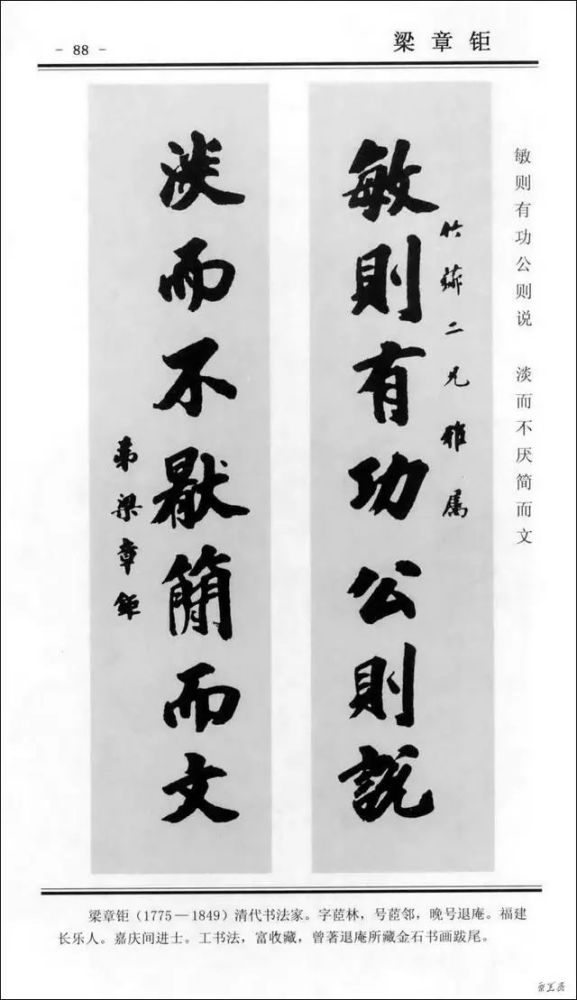 - 88 -
梁章钜
敏则有功公则说 淡而不厌简而文
敏則有功公則説
竹 二兄雅属
淡而不猒簡而文
弟梁章鉅
梁章钜（1775—1849）清代书法家。字茝林，号茝邻，晚号退庵。福建
长乐人。嘉庆间进士。工书法，富收藏，曾著退庵所藏金石书画跋尾。